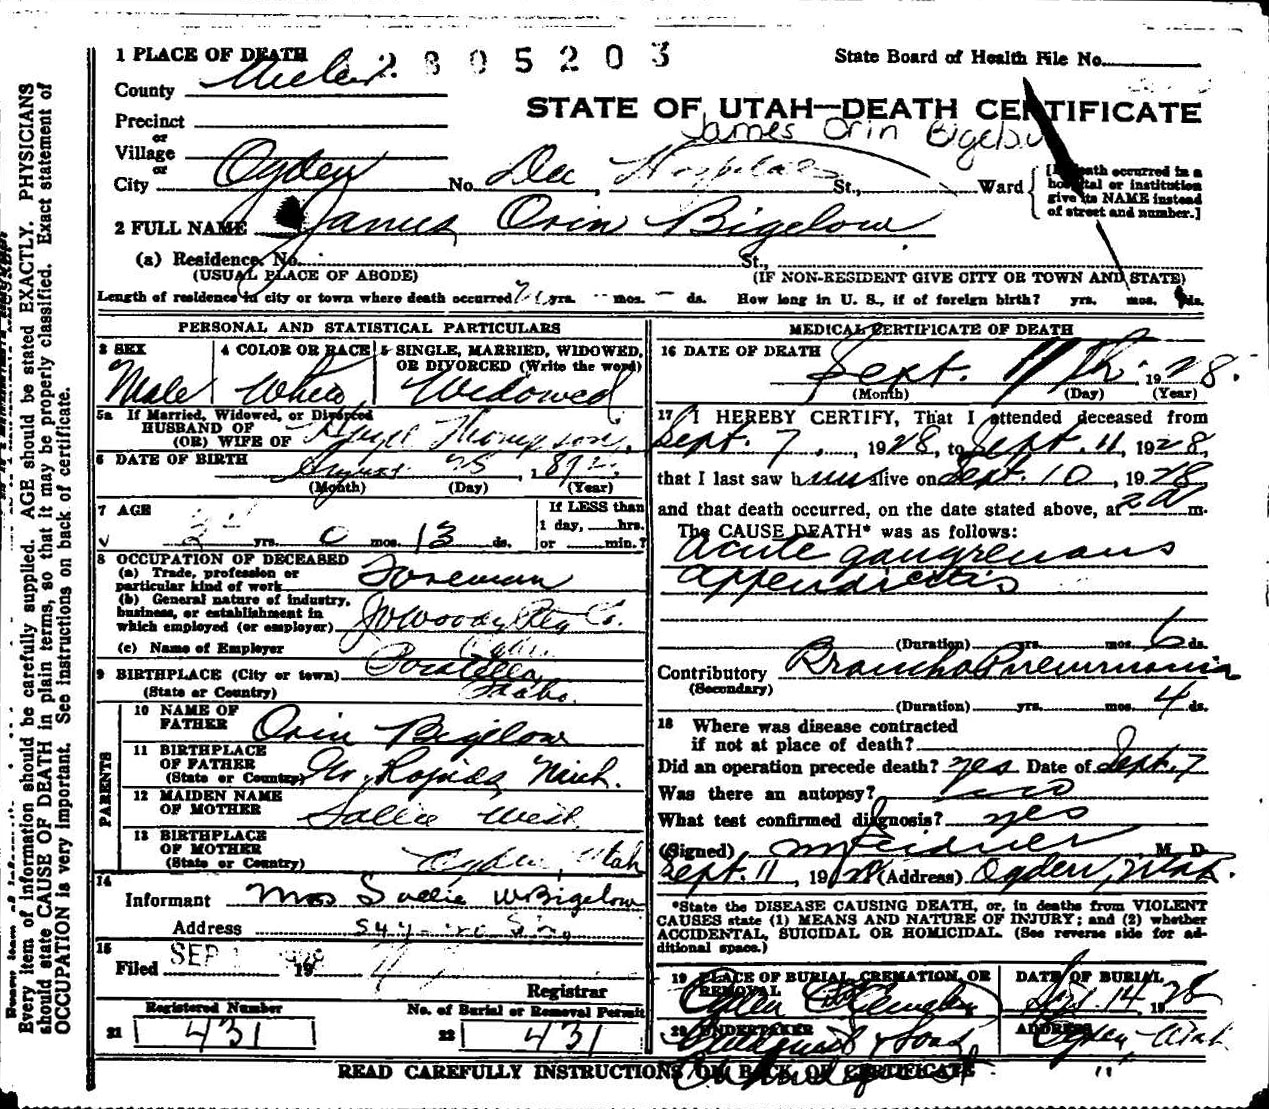 1 PLACE OF DEATH
2805203
State Board of Health File No.
County Weber
STATE OF UTAH—DEATH CERTIFICATE
Precinct
James Orin Bigelow
or
Village
or
City Ogden No. Dee Hospital St., Ward
[If death occurred in a hospital or institution give its NAME instead of street and number.]
2 FULL NAME James Orin Bigelow
(a) Residence. No. St.,
(USUAL PLACE OF ABODE) (IF NON-RESIDENT GIVE CITY OR TOWN AND STATE)
Length of residence in city or town where death occurred yrs. mos. ds. How long in U. S., if of foreign birth? yrs. mos. ds.
PERSONAL AND STATISTICAL PARTICULARS
3 SEX
Male
4 COLOR OR RACE
White
5 SINGLE, MARRIED, WIDOWED,
OR DIVORCED (Write the word)
Widowed
5a If Married, Widowed, or Divorced
HUSBAND OF
(OR) WIFE OF Thompson
6 DATE OF BIRTH August 25, 189
(Month) (Day) (Year)
7 AGE
yrs. 0 mos. 13 ds.
If LESS than
1 day, hrs.
or min.?
8 OCCUPATION OF DECEASED
(a) Trade, profession or
particular kind of work Foreman
(b) General nature of industry,
business, or establishment in
which employed (or employer) Co.
(c) Name of Employer
9 BIRTHPLACE (City or town) Pocatello
(State or Country) Idaho.
PARENTS
10 NAME OF
FATHER Orin Bigelow
11 BIRTHPLACE
OF FATHER
(State or Country) Gr. Rapids Mich.
12 MAIDEN NAME
OF MOTHER Sallie West
13 BIRTHPLACE
OF MOTHER
(State or Country) Ogden, Utah
14
Informant Mrs Sallie W Bigelow
Address
15
Filed SEP 19
Registrar
Registered Number
21 431
No. of Burial or Removal Permit
22 431
MEDICAL CERTIFICATE OF DEATH
16 DATE OF DEATH
Sept. 11th. 1928.
(Month) (Day) (Year)
17 I HEREBY CERTIFY, That I attended deceased from
Sept. 7, 1928, to Sept. 11, 1928,
that I last saw him alive on Sept. 10, 1928
and that death occurred, on the date stated above, at 2 a m.
The CAUSE DEATH* was as follows:
Acute gangrenous
appendicitis
(Duration) yrs. mos. 6 ds.
Contributory Broncho Pneumonia
(Secondary)
(Duration) yrs. mos. 4 ds.
18 Where was disease contracted
if not at place of death?
Did an operation precede death? yes Date of Sept. 7
Was there an autopsy? no
What test confirmed diagnosis? yes
(Signed) M. D.
Sept. 11, 1928 (Address) Ogden, Utah.
*State the DISEASE CAUSING DEATH, or, in deaths from VIOLENT
CAUSES state (1) MEANS AND NATURE OF INJURY; and (2) whether
ACCIDENTAL, SUICIDAL OR HOMICIDAL. (See reverse side for ad-
ditional space.)
19 PLACE OF BURIAL, CREMATION, OR
REMOVAL
Ogden City Cemetery
DATE OF BURIAL
Sept. 14 1928
20 UNDERTAKER
Lindquist & Sons
ADDRESS
Ogden Utah
READ CAREFULLY INSTRUCTIONS ON BACK OF CERTIFICATE
Every item of information should be carefully supplied. AGE should be stated EXACTLY. PHYSICIANS
should state CAUSE OF DEATH in plain terms, so that it may be properly classified. Exact statement of
OCCUPATION is very important. See instructions on back of certificate.